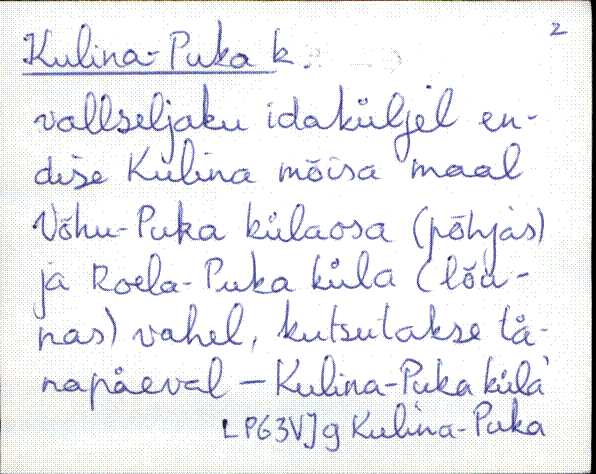 2
Kulina-Puka k.
vallseljaku idaküljel en-
dise Kulina mõisa maal
Võhu-Puka külaosa (põhjas)
ja Roela-Puka küla (lõu-
nas) vahel, kutsutakse tä-
napäeval – Kulina-Puka küla
LPG3VJg Kulina-Puka